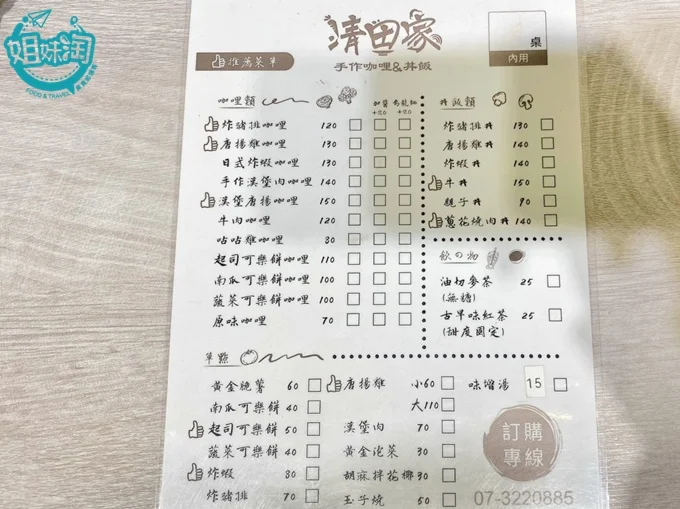 姐妹淘
FOOD & TRAVEL
清田家
手作咖哩&丼飯
推薦菜單
桌
內用
咖哩類
加醬 +20
烏龍麵 +20
炸豬排咖哩 120
唐揚雞咖哩 130
日式炸蝦咖哩 130
手作漢堡肉咖哩 140
漢堡唐揚咖哩 150
牛肉咖哩 120
咕咕雞咖哩 80
起司可樂餅咖哩 110
南瓜可樂餅咖哩 100
蔬菜可樂餅咖哩 100
原味咖哩 70
丼飯類
炸豬排丼 130
唐揚雞丼 140
炸蝦丼 140
牛丼 150
親子丼 90
蔥花燒肉丼 140
飲の物
油切麥茶 25
(無糖)
古早味紅茶 25
(甜度固定)
單點
黃金脆薯 60
南瓜可樂餅 40
起司可樂餅 50
蔬菜可樂餅 40
炸蝦 80
炸豬排 70
唐揚雞 小60
大110
漢堡肉 70
黃金泡菜 30
胡麻拌花椰 30
玉子燒 50
味噌湯 15
訂購
專線
07-3220885